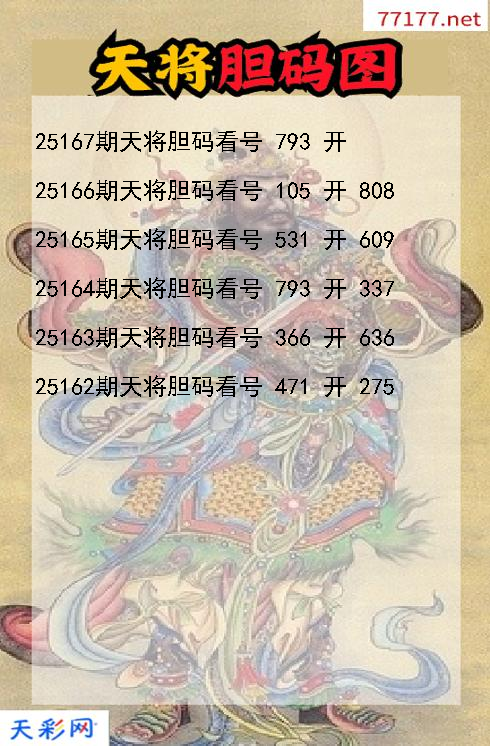 77177.net
天将胆码图
25167期天将胆码看号 793 开
25166期天将胆码看号 105 开 808
25165期天将胆码看号 531 开 609
25164期天将胆码看号 793 开 337
25163期天将胆码看号 366 开 636
25162期天将胆码看号 471 开 275
天彩网